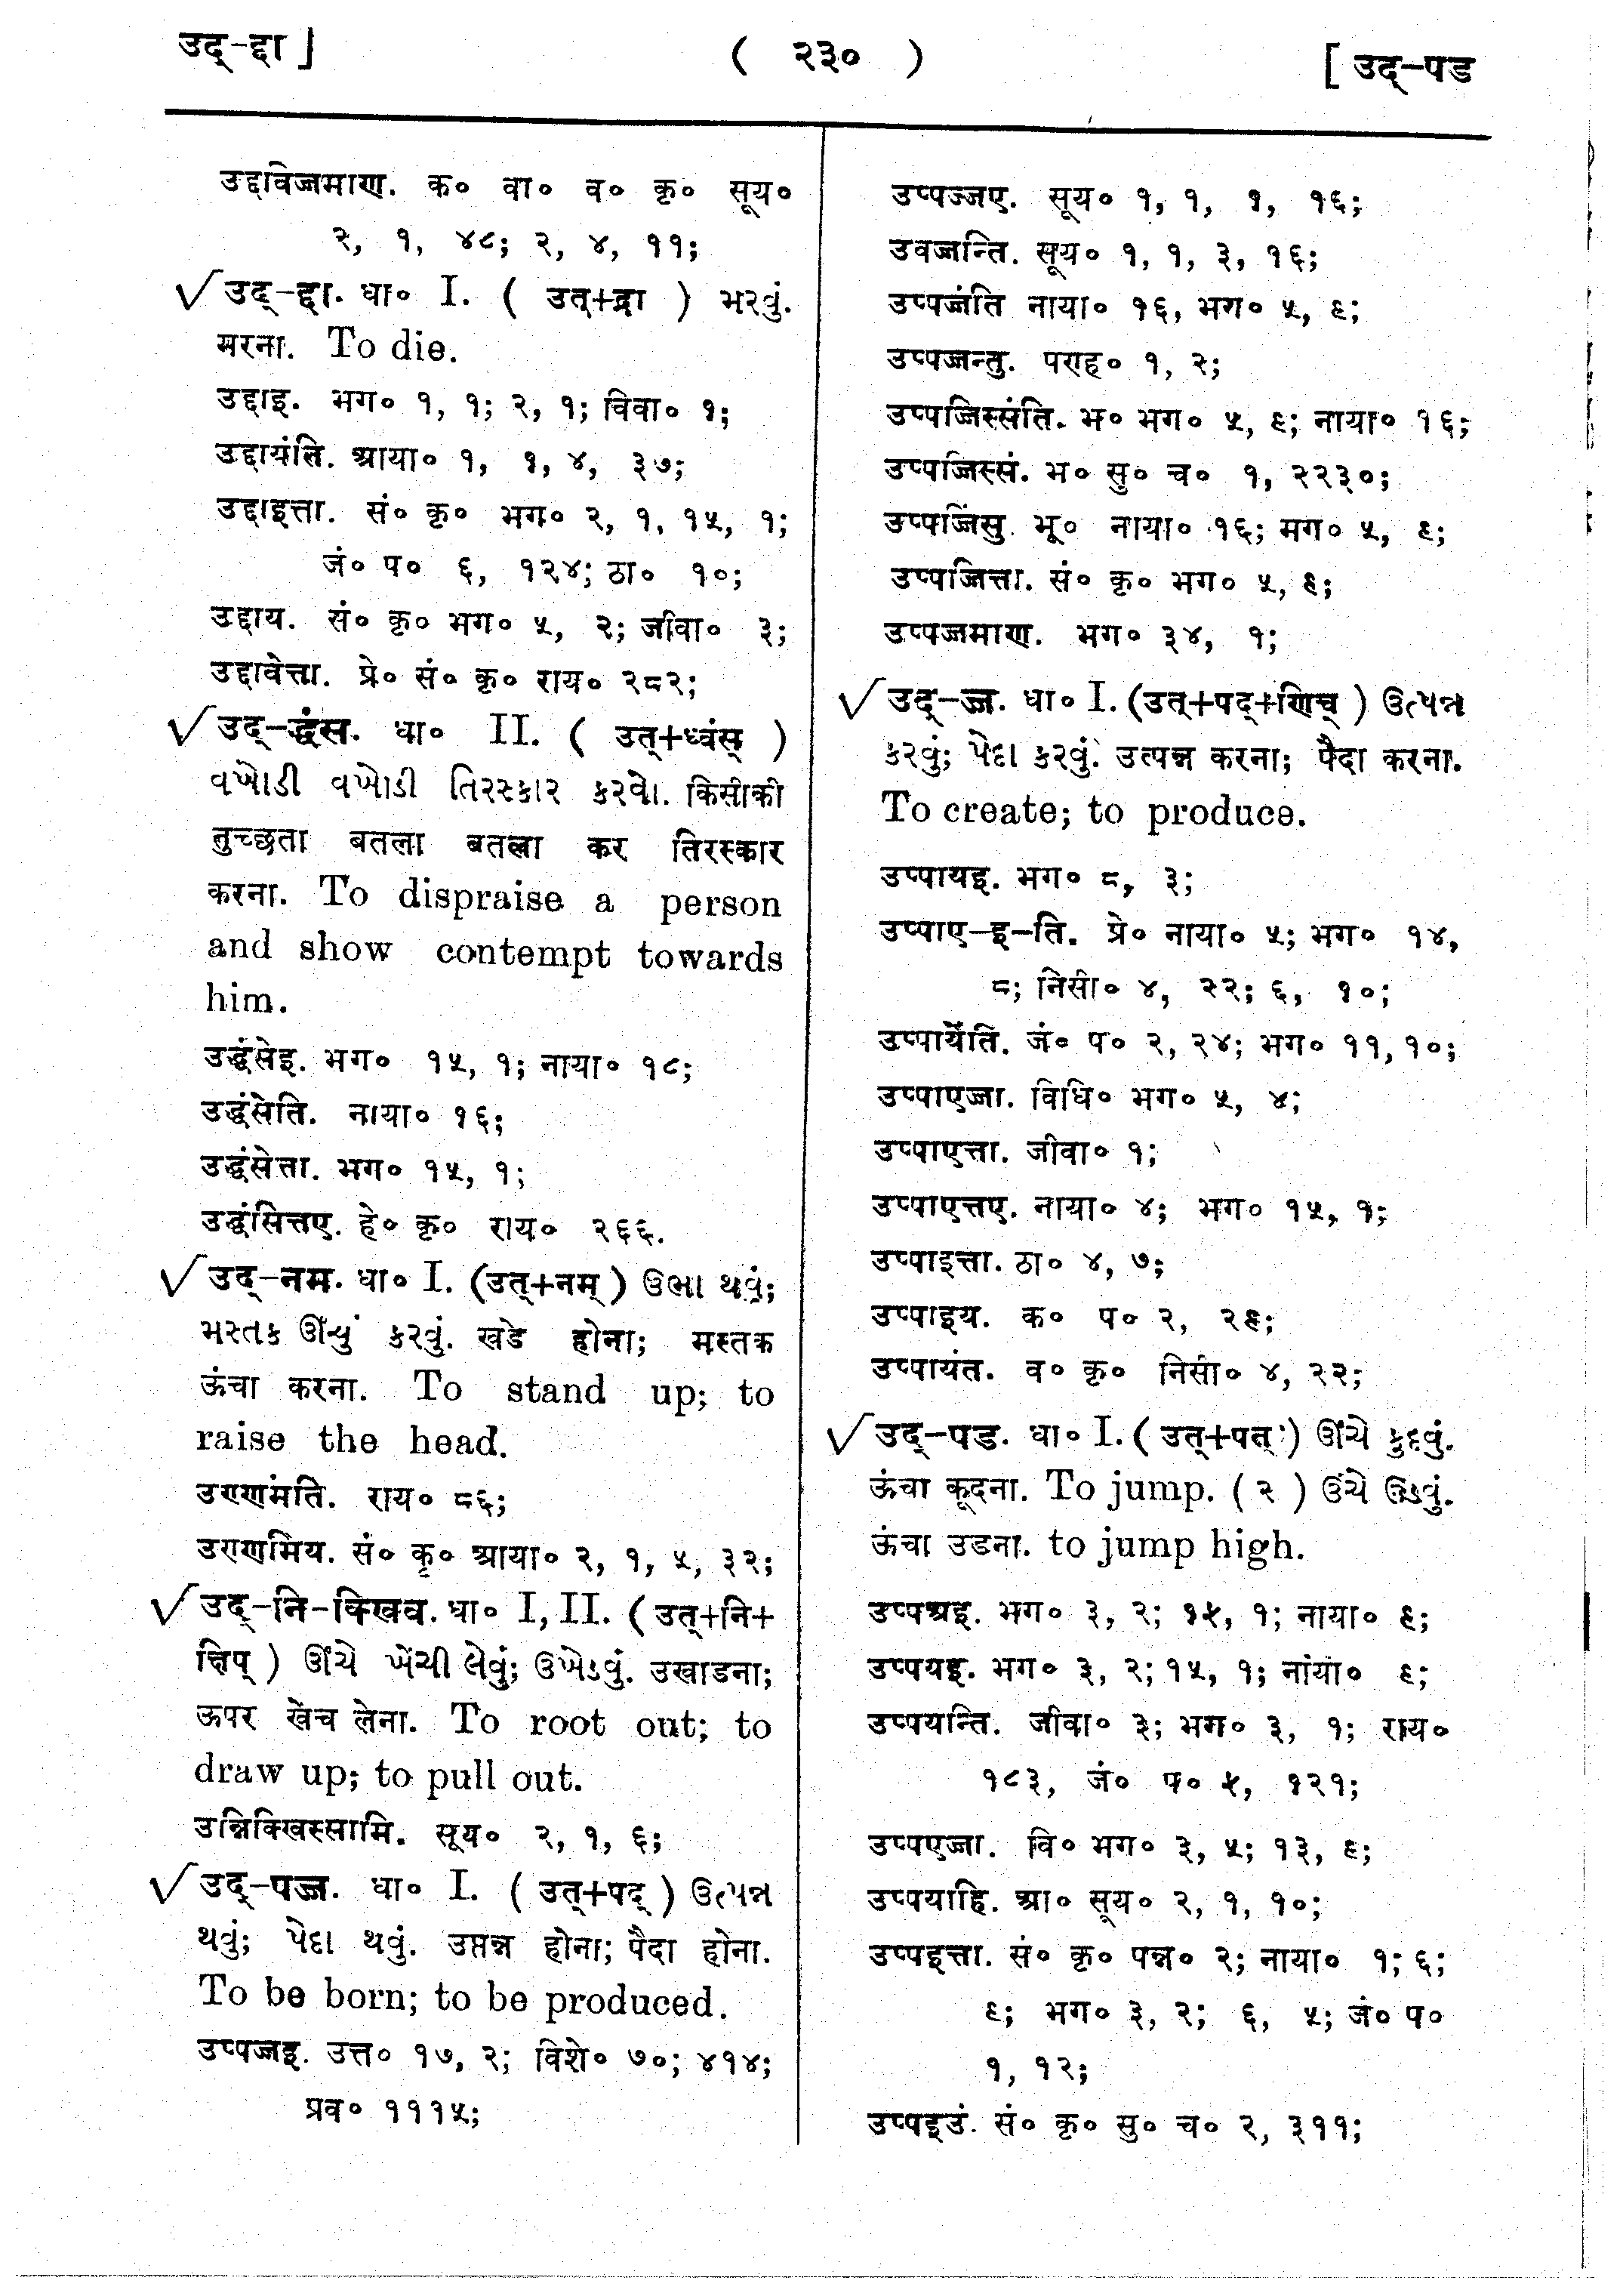 उद्-द्दा ]
( २३० )
[ उद्-पड
उद्दविज्जमाण. क० वा० व० कृ० सूय०
२, १, ४८; २, ४, ११;
√ उद्-द्दा. धा० I. ( उत्+द्रा ) મરવું.
मरना. To die.
उद्दाइ. भग० १, १; २, १; विवा० १;
उद्दायंति. आया० १, १, ४, ३७;
उद्दाइत्ता. सं० कृ० भग० २, १, १५, १;
जं० प० ६, १२४; ठा० १०;
उद्दाय. सं० कृ० भग० ५, २; जीवा० ३;
उद्दावेत्ता. प्रे० सं० कृ० राय० २८२;
√ उद्-द्धंस. धा० II. ( उत्+ध्वंस् )
વખોડી વખોડી તિરસ્કાર કરવો. किसीकी
तुच्छता बतला बतला कर तिरस्कार
करना. To dispraise a person
and show contempt towards
him.
उद्धंसेइ. भग० १५, १; नाया० १८;
उद्धंसेति. नाया० १६;
उद्धंसेत्ता. भग० १५, १;
उद्धंसित्तए. हे० कृ० राय० २६६.
√ उद्-नम. धा० I. (उत्+नम्) ઉભા થવું;
મસ્તક ઊંચું કરવું. खडे होना; मस्तक
ऊंचा करना. To stand up; to
raise the head.
उण्णमंति. राय० ८६;
उण्णमिय. सं० कृ० आया० २, १, ५, ३२;
√ उद्-नि-क्खिव. धा० I, II. ( उत्+नि+
क्षिप् ) ઊંચે ખેંચી લેવું; ઉખેડવું. उखाडना;
ऊपर खेंच लेना. To root out; to
draw up; to pull out.
उन्निक्खिस्सामि. सूय० २, १, ६;
√ उद्-पज्ज. धा० I. ( उत्+पद् ) ઉત્પન્ન
થવું; પેદા થવું. उप्तन्न होना; पैदा होना.
To be born; to be produced.
उप्पज्जइ. उत्त० १७, २; विशे० ७०; ४१४;
प्रव० १११५;
उप्पज्जए. सूय० १, १, १, १६;
उवज्जन्ति. सूय० १, १, ३, १६;
उप्पज्जंति नाया० १६, भग० ५, ६;
उप्पज्जन्तु. पण्ह० १, २;
उप्पज्जिस्संति. भ० भग० ५, ६; नाया० १६;
उप्पज्जिस्सं. भ० सु० च० १, २२३०;
उप्पज्जिंसु भू० नाया० १६; मग० ५, ६;
उप्पज्जित्ता. सं० कृ० भग० ५, ६;
उप्पज्जमाण. भग० ३४, १;
√ उद्-ज्ज. धा० I. (उत्+पद्+णिच् ) ઉત્પન્ન
કરવું; પેદા કરવું. उत्पन्न करना; पैदा करना.
To create; to produce.
उप्पायइ. भग० ८, ३;
उप्पाए-इ-ति. प्रे० नाया० ५; भग० १४,
८; निसी० ४, २२; ६, १०;
उप्पायेंति. जं० प० २, २४; भग० ११, १०;
उप्पाएज्जा. विधि० भग० ५, ४;
उप्पाएत्ता. जीवा० १;
उप्पाएत्तए. नाया० ४; भग० १५, १;
उप्पाइत्ता. ठा० ४, ७;
उप्पाइय. क० प० २, २६;
उप्पायंत. व० कृ० निसी० ४, २२;
√ उद्-पड. धा० I. ( उत्+पत् ) ઊંચે કુદવું.
ऊंचा कूदना. To jump. ( २ ) ઉંચે ઊડવું.
ऊंचा उडना. to jump high.
उप्पअइ. भग० ३, २; १५, १; नाया० ६;
उप्पयइ. भग० ३, २; १५, १; नांया० ६;
उप्पयन्ति. जीवा० ३; भग० ३, १; राय०
१८३, जं० प० ५, १२१;
उप्पएज्जा. वि० भग० ३, ५; १३, ६;
उप्पयाहि. आ० सूय० २, १, १०;
उप्पइत्ता. सं० कृ० पन्न० २; नाया० १; ६;
६; भग० ३, २; ६, ५; जं० प०
१, १२;
उप्पइउं. सं० कृ० सु० च० २, ३११;